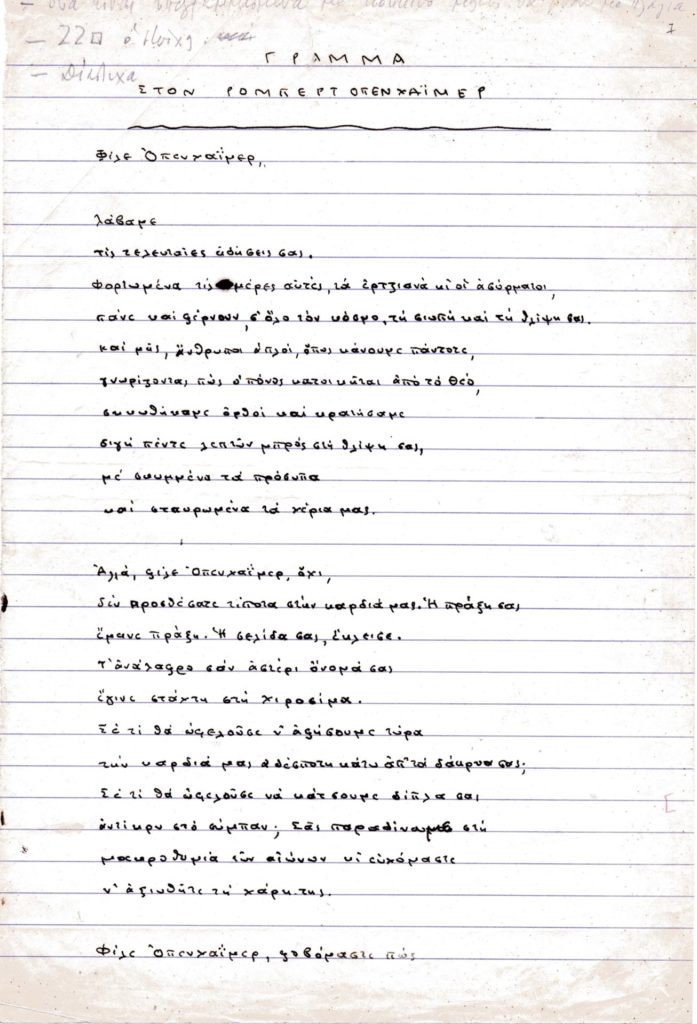 - ὅσα εἶναι ὑπογραμμισμένα μὲ κόκκινο
- 22 ὁ στίχος.
- Δίστιχα
1
ΓΡΑΜΜΑ
ΣΤΟΝ ΡΟΜΠΕΡΤ ΟΠΕΝΧΑΪΜΕΡ
Φίλε Ὀπενχάϊμερ,
λάβαμε
τὶς τελευταῖες εἰδήσεις σας.
Φορτωμένα τὶς μέρες αὐτές, τὰ ἑρτζιανὰ κι οἱ ἀσύρματοι,
πᾶνε καὶ φέρνουν, σ' ὅλο τὸν κόσμο, τὴ σιωπὴ καὶ τὴ θλίψη σας.
καὶ μεῖς, ἄνθρωποι ἁπλοί, ὅπως κάνουμε πάντοτε,
γνωρίζοντας πὼς ὁ πόνος κατοικῆται ἀπὸ τὸ Θεό,
σηκωθήκαμε ὀρθοὶ καὶ κρατήσαμε
σιγὴ πέντε λεπτῶν μπρὸς στὴ θλίψη σας,
μὲ σκυμμένα τὰ πρόσωπα
καὶ σταυρωμένα τὰ χέρια μας.
Ἀλλά, φίλε Ὀπενχάϊμερ, ὄχι,
δὲν προσθέσατε τίποτα στὴν καρδιά μας. Ἡ πράξη σας
ἔμεινε πράξη. Ἡ σελίδα σας, ἔκλεισε.
Τ' ἀνάλαφρο σὰν ἀστέρι ὄνομά σας
ἔγινε στάχτη στὴ Χιροσίμα.
Σὲ τί θὰ ὠφελοῦσε ν' ἀφήσουμε τώρα
τὴν καρδιά μας ἀδέσποτη κάτω ἀπ' τὰ δάκρυα σας;
Σὲ τί θὰ ὠφελοῦσε νὰ κάτσουμε δίπλα σας
ἀντίκρυ στὸ σύμπαν; Σᾶς παραδίνουμε στὴ
μακροθυμία τῶν αἰώνων κι εὐχόμαστε
ν' ἀξιωθῆτε τὴ χάρη της.
Φίλε Ὀπενχάϊμερ, φοβόμαστε πὼς